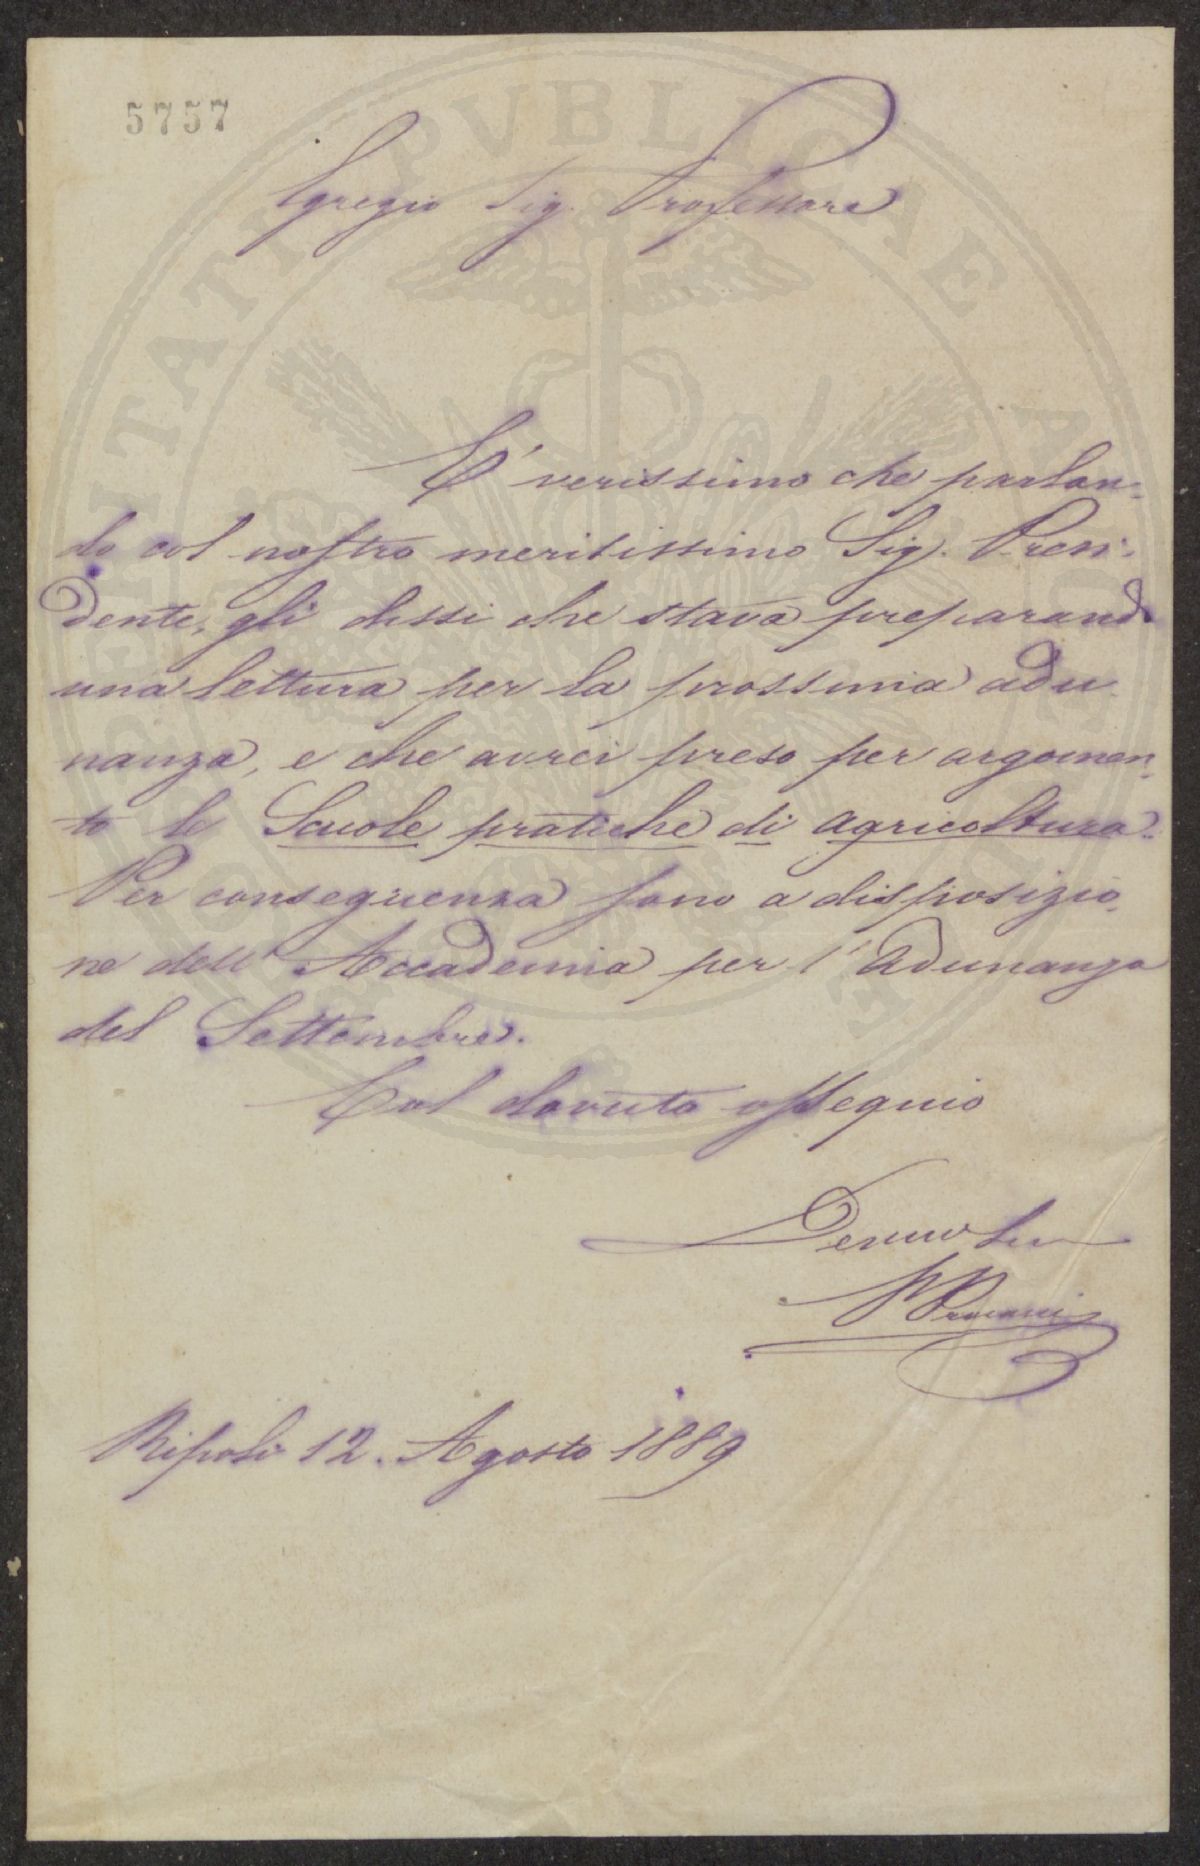 5757
Egregio Sig. Professore
E' verissimo che parlan-
do col nostro meritissimo Sig. Presi-
dente, gli dissi che stava preparando
una lettura per la prossima adu
nanza, e che avrei preso per argomen-
to le Scuole pratiche di agricoltura.
Per conseguenza sono a disposizio
ne dell' Accademia per l'Adunanza
del Settembre.
Col dovuto ossequio
Ripoli 12. Agosto 1889